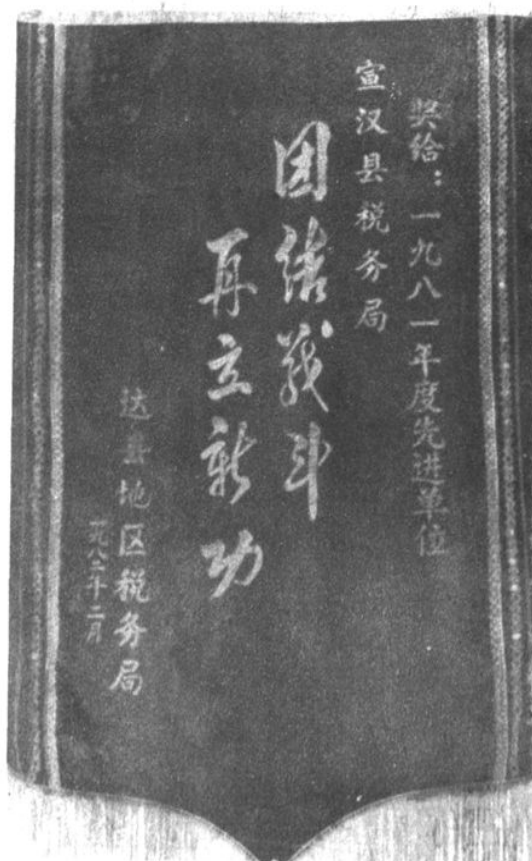 奖给：一九八一年度先进单位
宣汉县税务局
团结战斗
再立新功
达县地区税务局
一九八二年二月